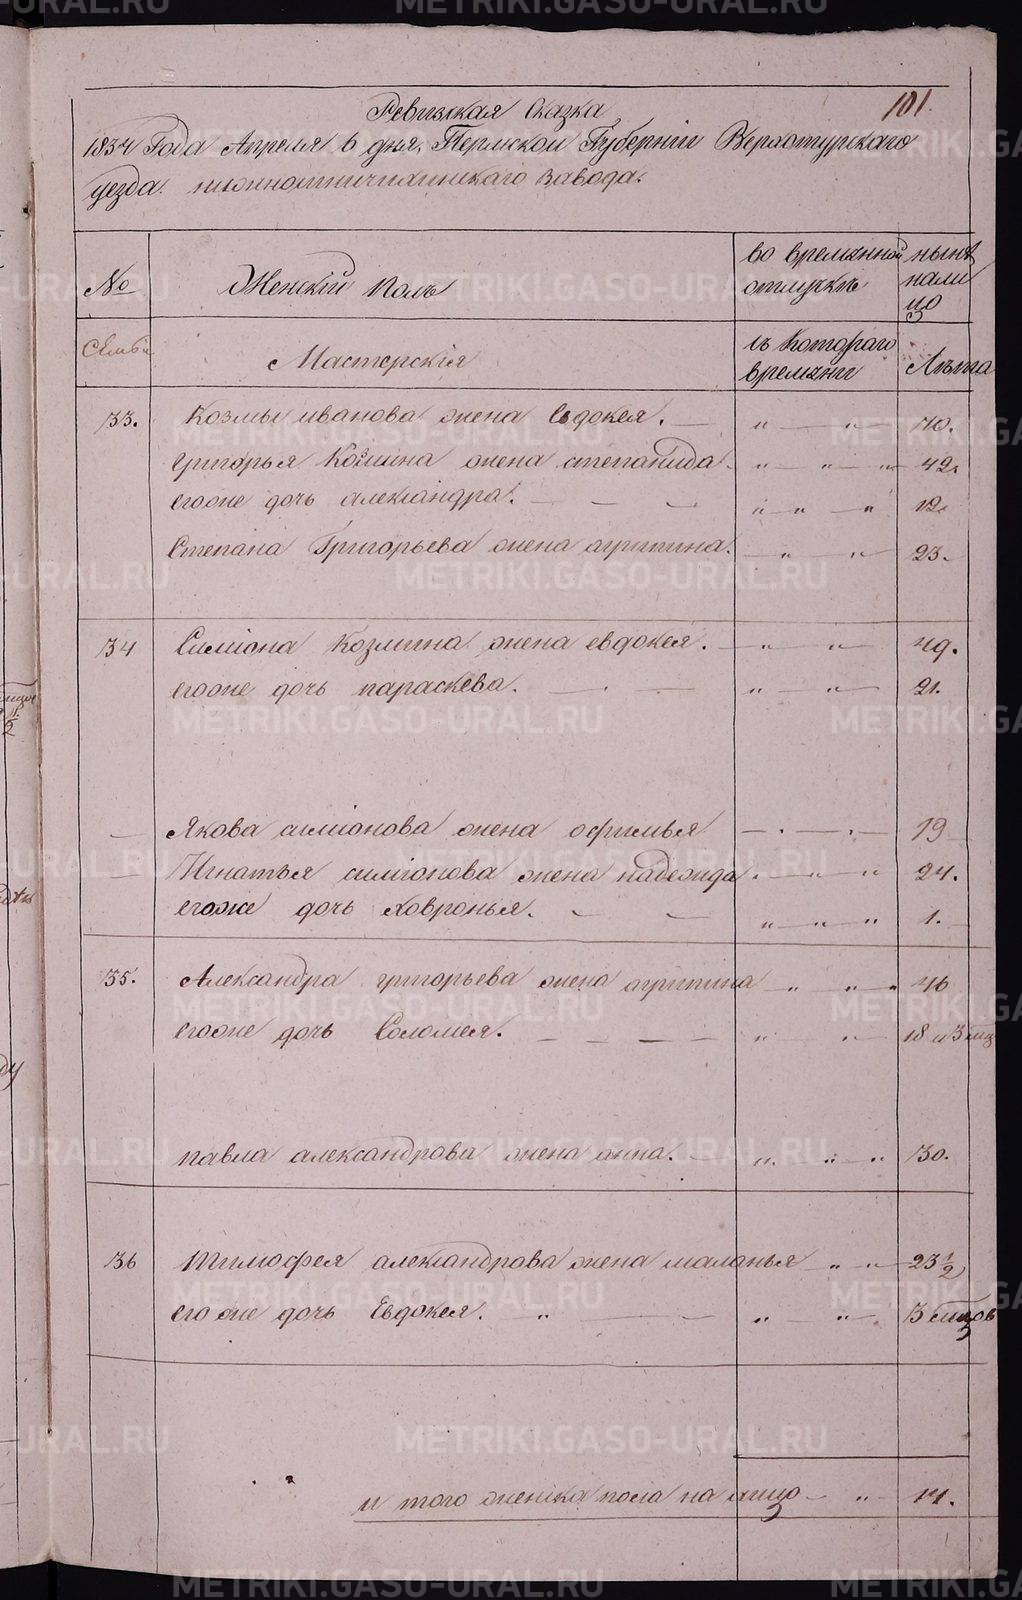 101.
Ревизская Сказка
1834 Года Апреля 6 дня, Пермской Губернiи Верхотурскаго
уезда. завода.
№ Женскiй полъ во временной отлучкѣ нынѣ на лицо
Семьи Мастерскiя съ котораго времени Лѣта
33. Козмы иванова жена Евдокея. — „ — „ — 70.
григорья Козмина жена степанида. „ — „ — „ 42.
егоже дочь александра. — — — „ — „ — „ 12.
Степана Григорьева жена агрипина. — „ — „ — 23.
34 Симiона Козмина жена евдокея. — „ — „ — 49.
егоже дочь параскева. — — „ — „ — 21.
— Якова симионова жена офимья — „ — „ — 19
— Игнатья симионова жена надежида. — „ — „ 24.
егоже дочь ховронья. — — „ — „ — „ 1.
35. Александра григорьева жена агрипина — „ — „ — „ 46
егоже дочь Соломея. — — — — „ — „ — 18 и 3 мц
павла александрова жена анна. — „ — „ — „ 30.
36 тимофея александрова жена маланья „ — „ — 23 1/2
егоже дочь Евдокея. „ — — „ — „ — 3 мцов
и того женска пола на лицо — „ — 14.
METRIKI.GASO-URAL.RU